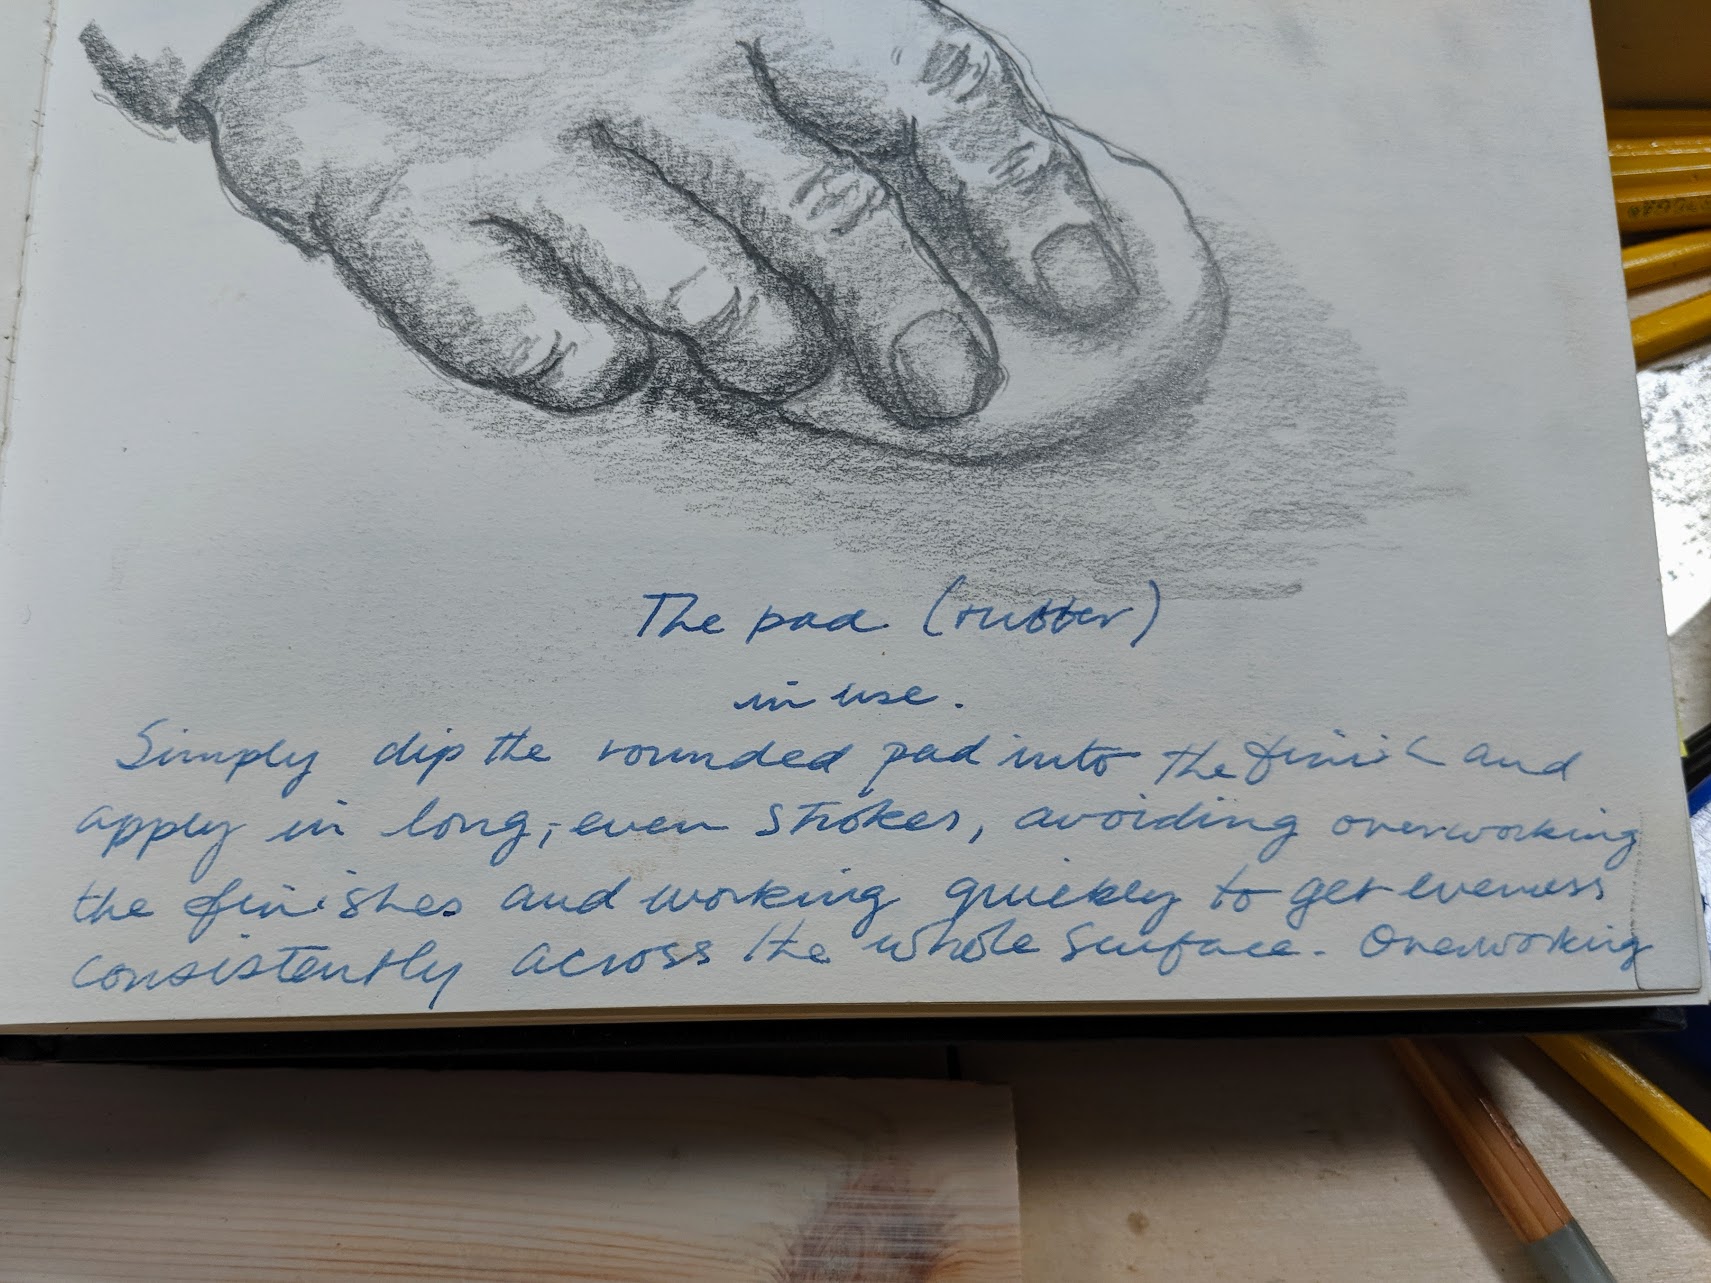 The pad (rubber)
in use.
Simply dip the rounded pad into the finish and
apply in long, even strokes, avoiding overworking
the finishes and working quickly to get eveness
consistently across the whole surface. Overworking